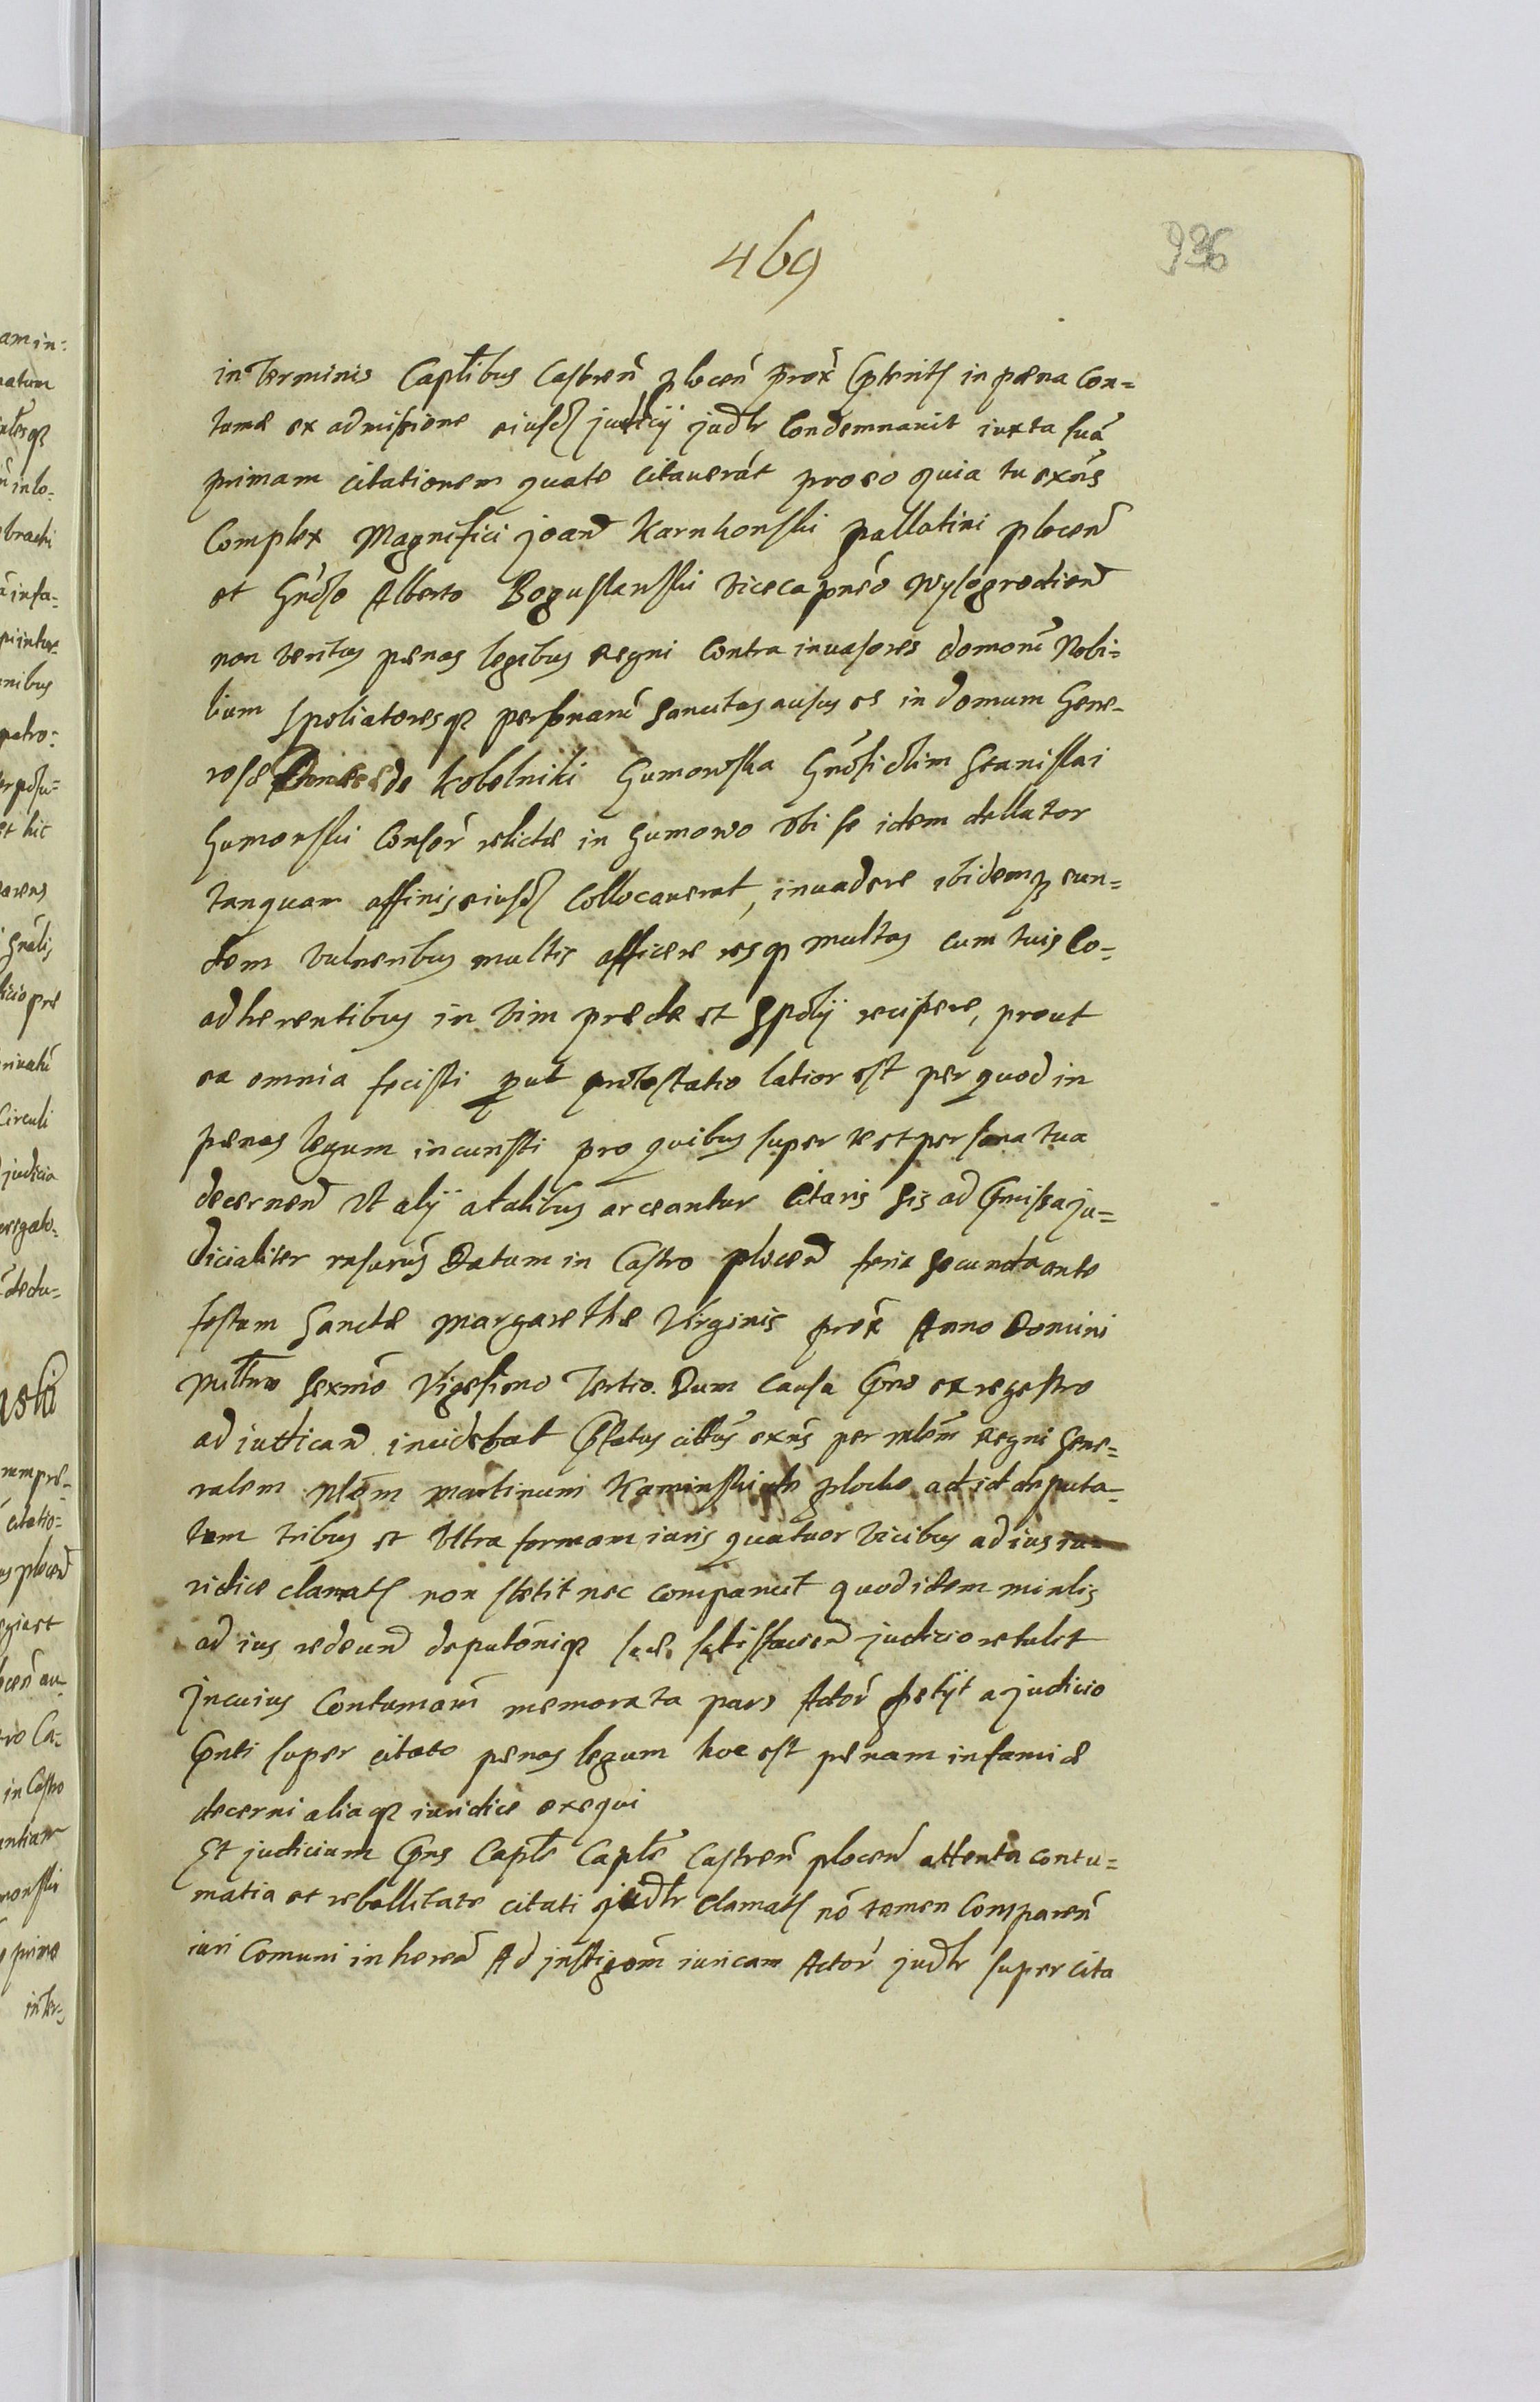 469
936
in Terminis Caplibus Castren plocen prox pteritis in pæna Con=
tumæ ex admissione eiusd judicij judlr Condemnauit iuxta suã
primam citationem qua te citauerát pro eo quia tu exñs
Complex Magnifici joand Karnkonski pallatini plocen
et Gñdso Alberto Boguslanski Vicecapneo Wyssogrodien
non veritus pænas legibus Regni Contra inuasores domorũ Nobi=
lium spoliatoresq personarũ sancitas ausus es in domum Gene=
rosæ de Kobelniki Gumowska Gndsi olim Stanislai
Gumonski Consor relictæ in Gumowo Vbi se idem dellator
tanquam affinis eiusd Collocauerat, inuadere ibidemq eun=
dem vulneribus multis afficere resq multas cum tuis Co=
adherentibus in vim prædæ et Spolij recipere, prout
ea omnia fecisti put protestatio latior est per quod in
pænas legum incuristi pro quibus super te et persona tua
decernend Vt alij a talibus arceantur Citaris sis ad pmissa ju=
dicialiter rnsurus Datum in Castro plocen feria secunda ante
festum Sanctæ Margarethæ Virginis prox Anno Domini
Milmo Sexmo Vigesimo Tertio. Dum Causa pns ex regestro
ad iudicand incidebat pfatus cittus exñs per mlem Regni Gene=
ralem nlem Martinum Kaminski de plocko ad id deputa=
tum tribus et Vltra formam iuris quatuor vicibus ad ius iu=
ridice clamats non stetit nec comparuit quod idem minlis
ad ius redeund deputoniq suæ satisfaciend judicio retulit
In cuius Contumam memorata pars Actor petijt a judicio
pnti super citato pænas legum hoc est pænam infamiæ
decerni aliaq iuridice exequi
Et judicium pns Caple Caple Castren plocen attenta contu=
matia et rebellitate citati judlr clamats nõ tamen Comparen
iuri Comuni inherend Ad instigõm iuricam Actor judlr super cita